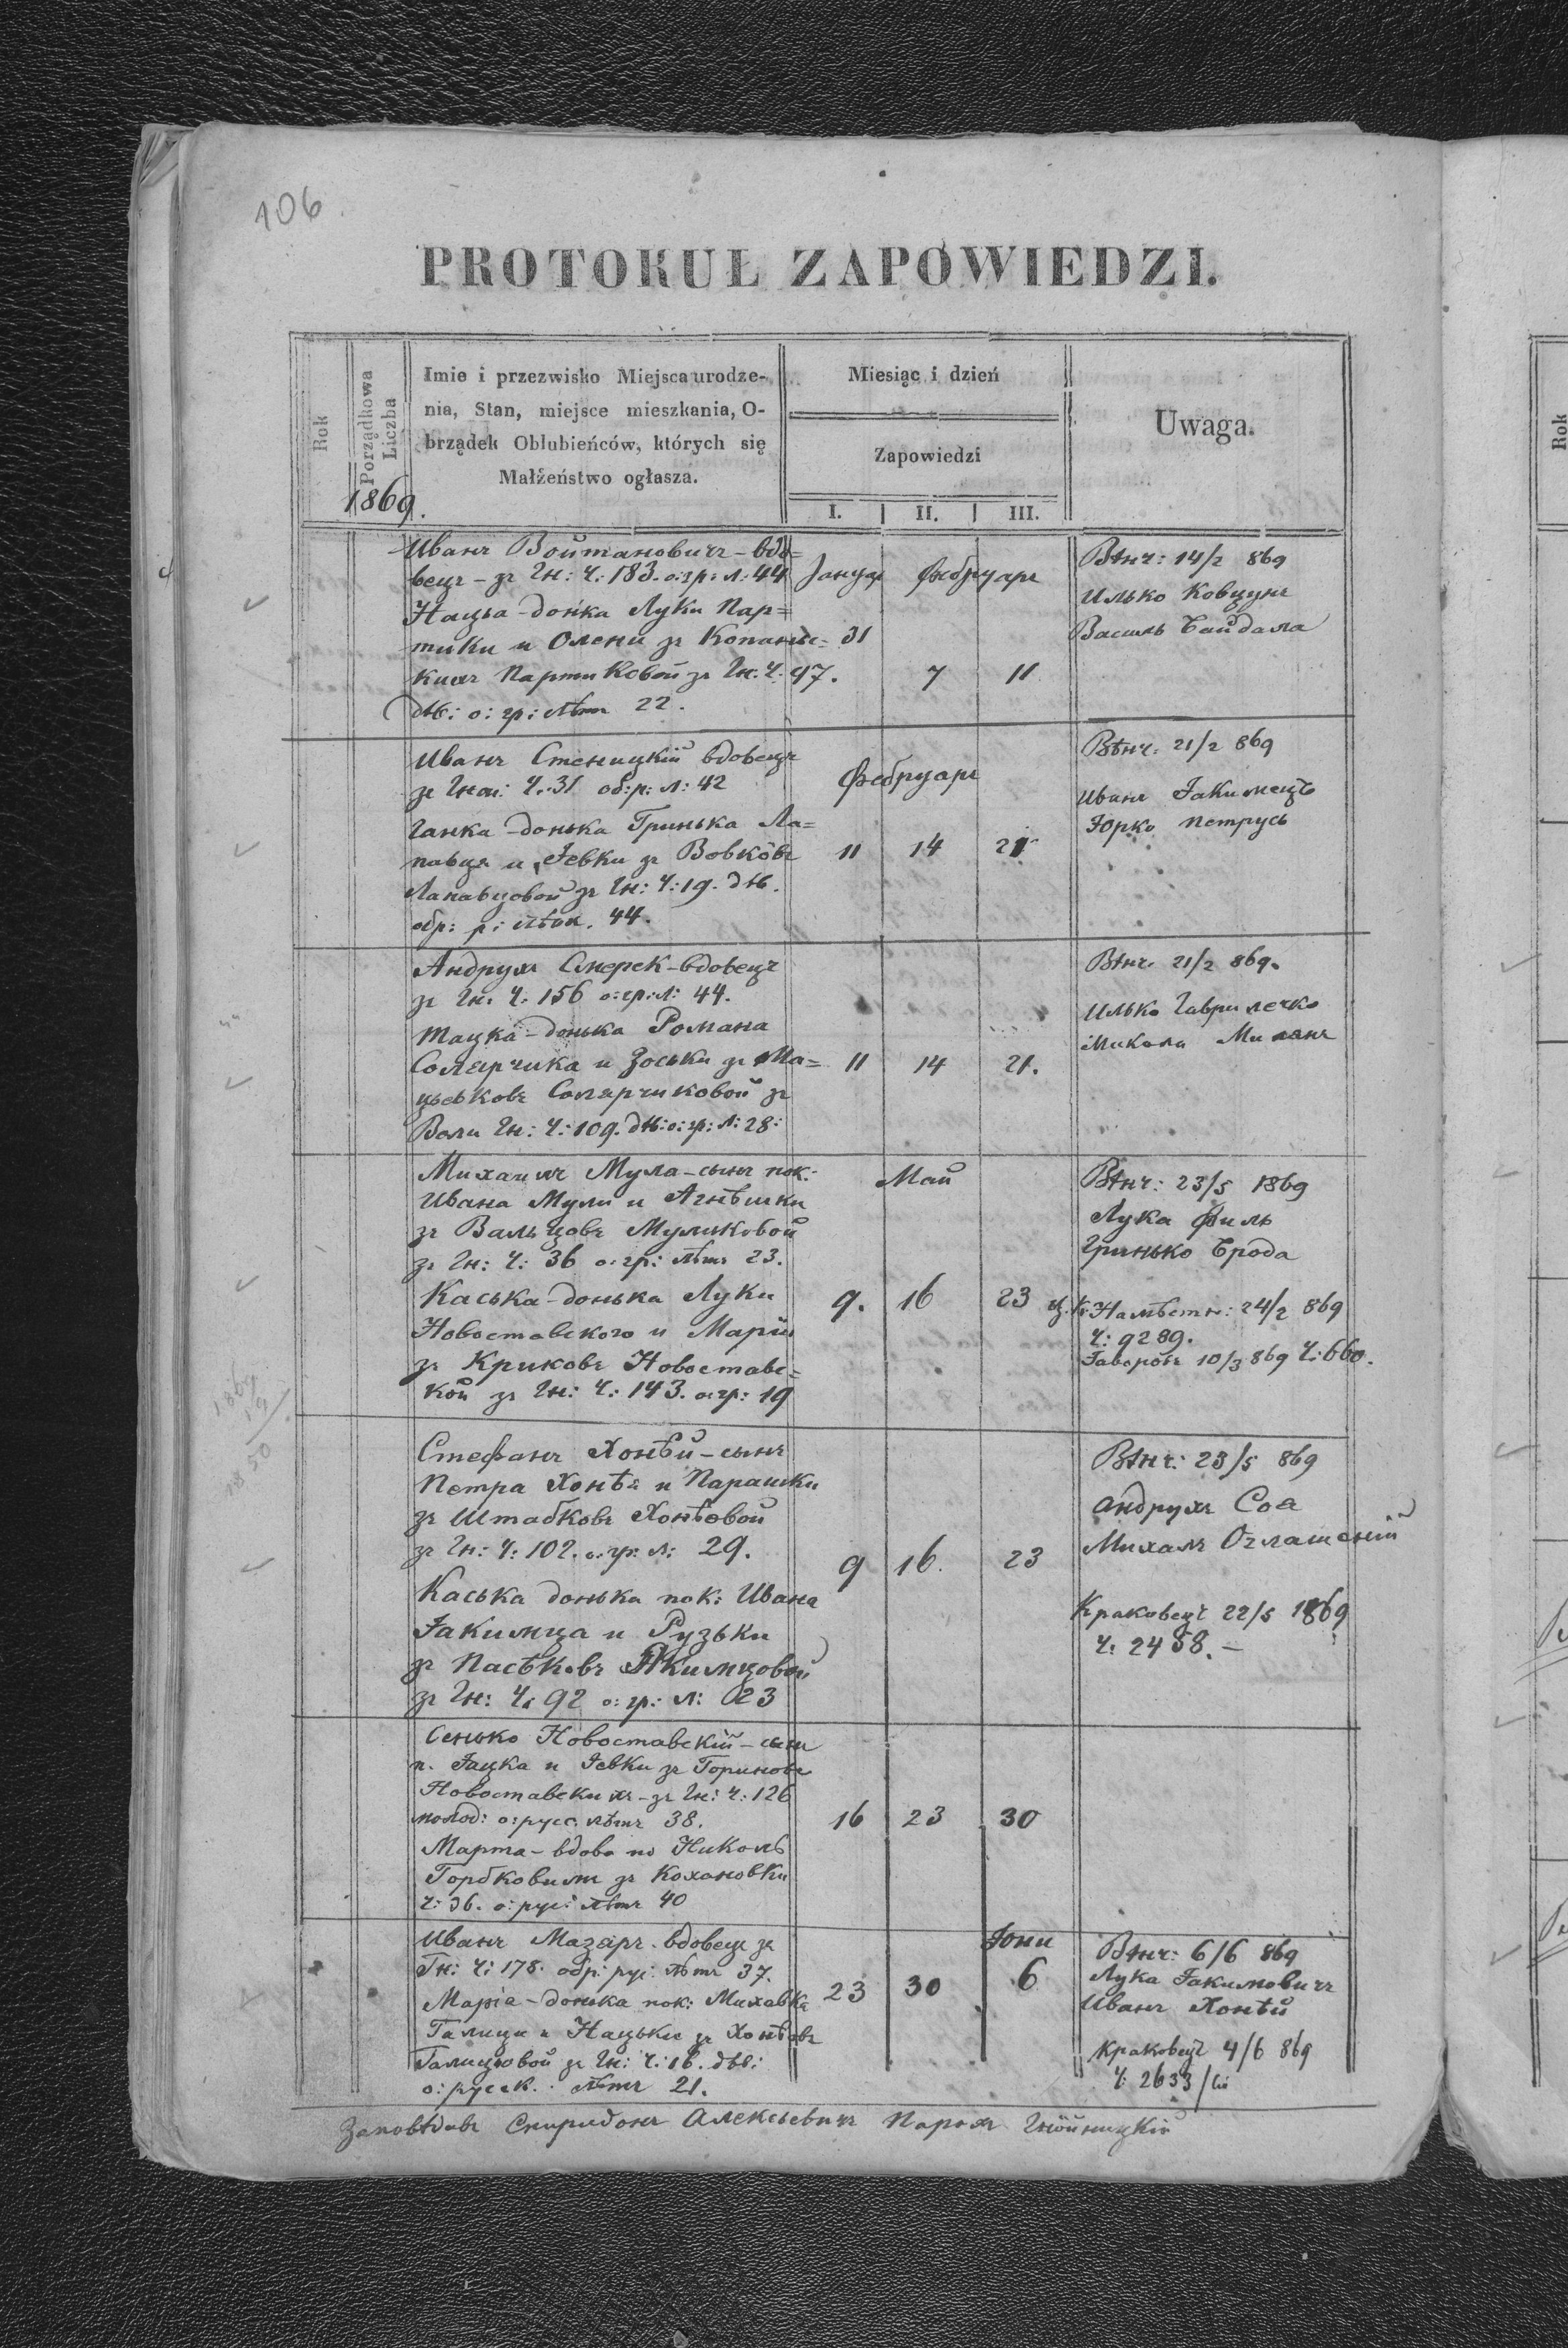 106
PROTOKUŁ ZAPOWIEDZI.
Rok
Porządkowa Liczba
Imie i przezwisko Miejsca urodze-
nia, Stan, miejsce mieszkania, O-
brządek Oblubieńców, których się
Małżeństwo ogłasza.
Miesiąc i dzień
Zapowiedzi
I. II. III.
Uwaga.
1869.
Иванъ Войтановичъ - вдо=
вецъ - зъ Гн: Ч: 183. о: гр: л: 44
Нацьа - донка Луки Пар=
тики и Олени зъ Копаньс=
кихъ Партиковой зъ Гн: Ч: 97.
дѣв: о: гр: лѣтъ 22.
Януар Фебруаръ
31 7 11
Вѣнч: 14/2 869
Илько Ковцунъ
Василь Байдала
Иванъ Стеницкій вдовецъ
зъ Гной: Ч: 31 об: р: л: 42
Ганка - донька Гринька Ла=
павця и Іевки зъ Вовковъ
Лапавцовой зъ Гн: Ч: 19. дѣв.
обр: р: лѣтъ. 44.
Фебруаръ
11 14 21
Вѣнч: 21/2 869
Иванъ Іакимецъ
Юрко Петрусь
Андрухъ Смерек - вдовецъ
зъ Гн: Ч: 156 о: гр: л: 44.
Тацка - донька Романа
Солярчика и Зоськи зъ Ма=
цьковъ Солярчиковой зъ
Воли Гн: Ч: 109. дѣв: о: гр: л: 28:
11 14 21.
Вѣнч. 21/2 869.
Илько Гаврилечко
Микола Миланъ
Михаилъ Мула - сынъ пок:
Ивана Мули и Агнѣшки
зъ Вальцовъ Муликовой
зъ Гн: Ч: 36 о: гр: лѣтъ 23.
Каська - донька Луки
Новоставского и Маріи
зъ Криковъ Новоставс=
кой зъ Гн: Ч: 143. о: гр: 19
Май
9. 16 23
Вѣнч: 23/5 1869
Лука Филь
Гринько Брода
ц. к. Намѣстн: 24/2 869
Ч: 9289.
Яворовъ 10/3 869 Ч: 660.
1869
19
1850
Стефанъ Хонѣй - сынъ
Петра Хонѣя и Парашки
зъ Штабковъ Хонѣовой
зъ Гн: Ч: 102. о: гр: л: 29.
Каська донька пок: Ивана
Іакимца и Рузьки
зъ Пасѣковъ Якимцовой
зъ Гн: Ч: 92 о: гр: л: 23
9 16. 23
Вѣнч: 23/5 869
Андрухъ Соа
Михалъ Оглашскій
Краковецъ 22/5 1869
Ч: 2458. -
Сенько Новоставскій - сынъ
п. Яцка и Іевки зъ Гориновъ
Новоставскихъ - зъ Гн: Ч: 126
молод: о: русс. лѣтъ 38.
Марта - вдова по Николѣ
Горбковимъ зъ Кохановки
Ч: 36. о: рус: лѣтъ 40
16 23 30
Иванъ Мазяръ. вдовецъ зъ
Гн: Ч: 178. обр: рус: лѣтъ 37.
Марія - донька пок: Михавка
Галици и Нацьки зъ Хонѣовъ
Галицовой зъ Гн: Ч: 16. дѣв:
о: русск. лѣтъ 21.
23 30
Юни
6
Вѣнч: 6/6 869
Лука Іакимовичъ
Иванъ Хонѣй
Краковецъ 4/6 869
Ч: 2633
Заповѣдавъ Спиридонъ Алексѣевичъ Парохъ Гнойницкій
Rok